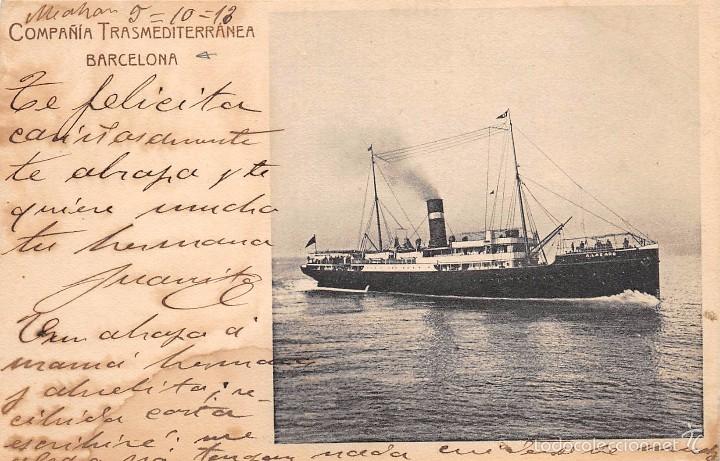 5-10-18
COMPAÑÍA TRASMEDITERRÁNEA
BARCELONA
Te felicita
cariñosamente
te abraza y te
quiere mucho
tu hermana
Juanita
abraza á
mamá herman
y abuelita; re-
cibida carta
escribiré; me
tengan nada en
todocoleccion